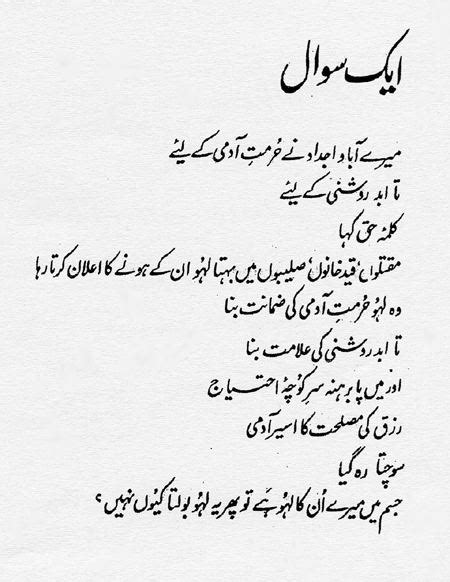 ایک سوال
میرے آبا و اجداد نے حُرمتِ آدمی کے لیٔے
تا ابد روشنی کے لیٔے
کلمۂ حق کہا
مقتلوں، قید خانوں، صلیبوں میں بہتا لہُو ان کے ہونے کا اعلان کرتا رہا
وہ لہُو حُرمتِ آدمی کی ضمانت بنا
تا ابد روشنی کی علامت بنا
اور میں پا برہنہ سرِ کُوچۂ احتیاج
رزق کی مصلحت کا اسیر آدمی
سوچتا رہ گیا
جسم میں میرے اُن کا لہُو ہے تو پھر یہ لہُو بولتا کیُوں نہیں؟